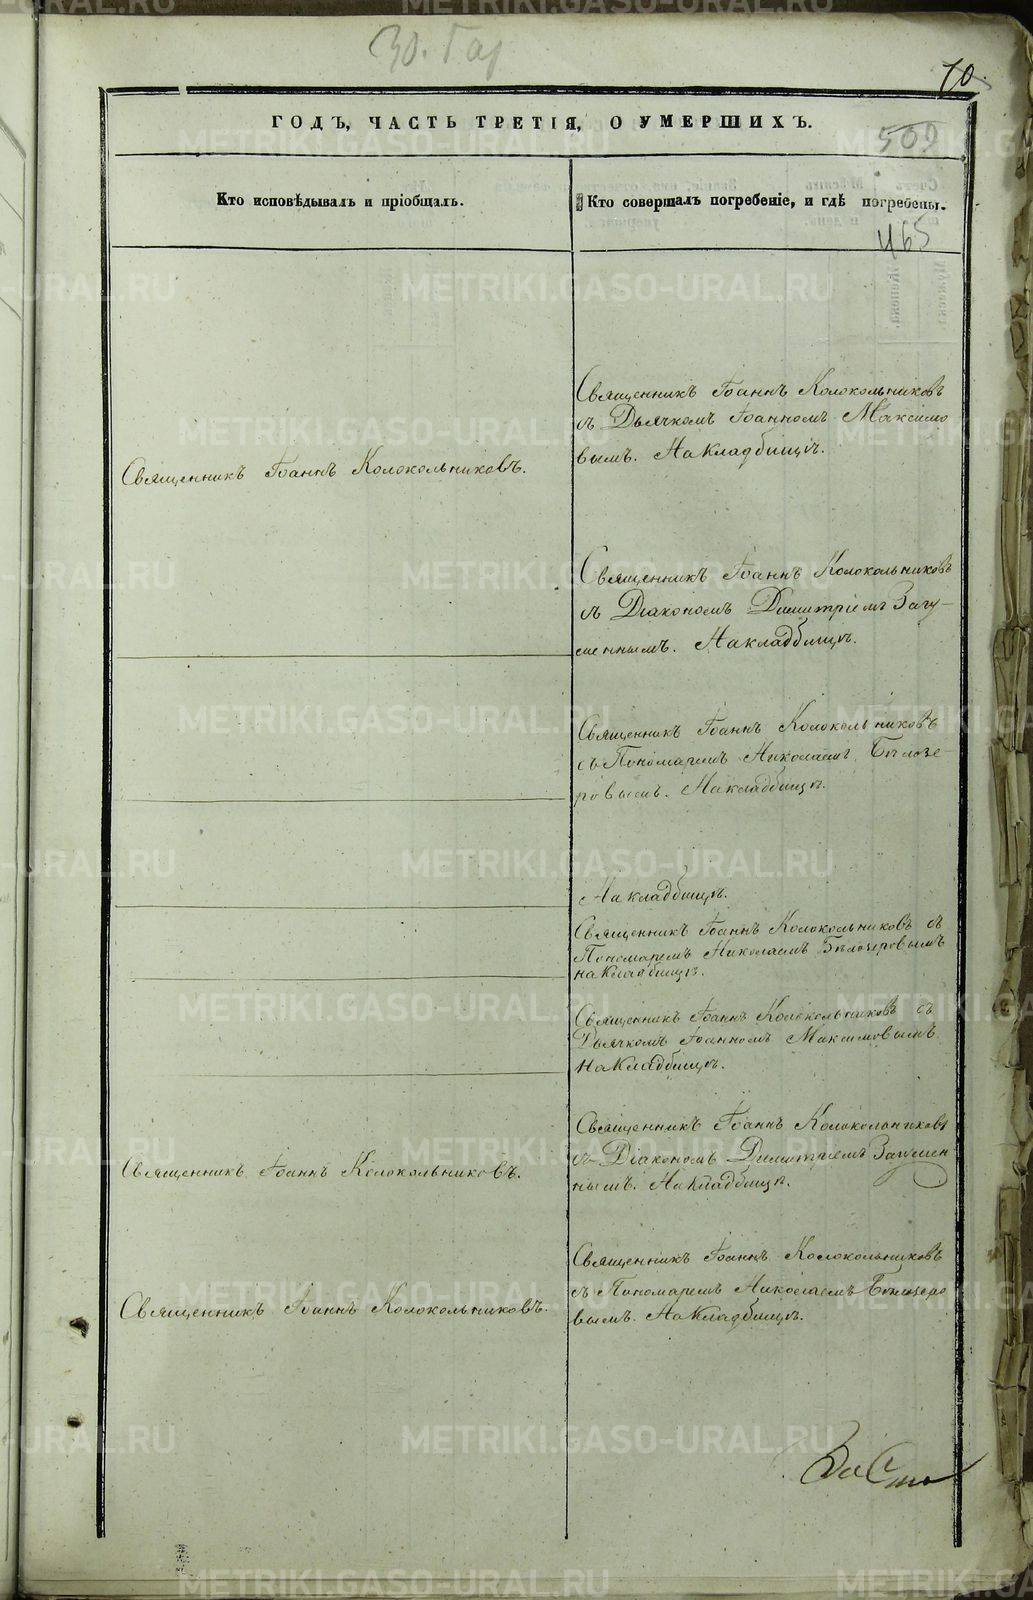 30. Гар
70.
ГОДЪ, ЧАСТЬ ТРЕТІЯ, О УМЕРШИХЪ.
509
Кто исповѣдывалъ и пріобщалъ.
Кто совершалъ погребеніе, и гдѣ погребены.
465
Священникъ Іоаннъ Колокольниковъ
съ Дьячкомъ Іоанномъ Максимо
вымъ. На Кладбищѣ.
Священникъ Іоаннъ Колокольниковъ.
Священникъ Іоаннъ Колокольниковъ
съ Діакономъ Димитріемъ Загу-
меннымъ. На кладбищѣ.
Священникъ Іоаннъ Колокольниковъ
съ Пономаремъ Николаемъ Бѣлозе-
ровымъ. На кладбищѣ.
На кладбищѣ.
Священникъ Іоаннъ Колокольниковъ съ
Пономаремъ Николаемъ Бѣлозеровымъ
на Кладбищѣ.
Священникъ Іоаннъ Колокольниковъ съ
Дьячкомъ Іоанномъ Максимовымъ
на Кладбищѣ.
Священникъ Іоаннъ Колокольниковъ
съ Діакономъ Димитріемъ Загумен-
нымъ. На Кладбищѣ.
Священникъ Іоаннъ Колокольниковъ.
Священникъ Іоаннъ Колокольниковъ
съ Пономаремъ Николаемъ Бѣлозеро
вымъ. На Кладбищѣ.
Священникъ Іоаннъ Колокольниковъ.
METRIKI.GASO-URAL.RU